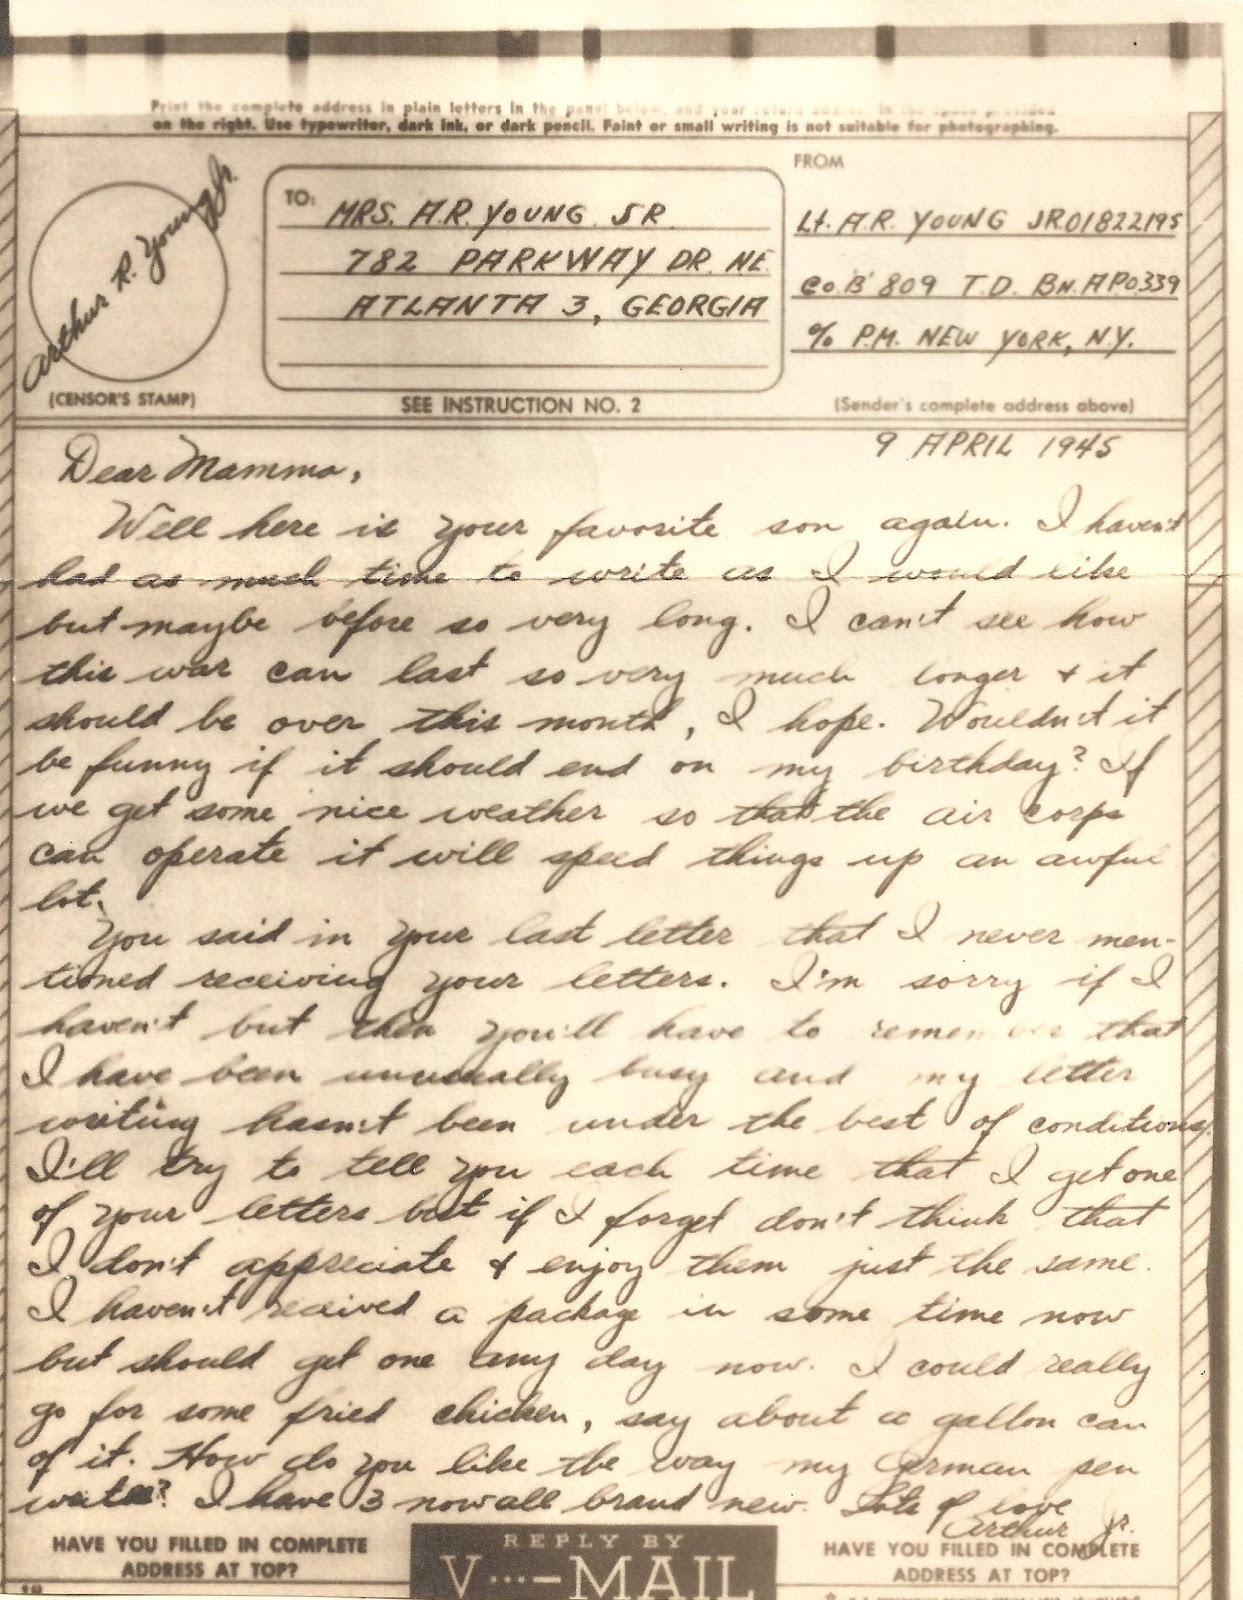 Print the complete address in plain letters in the panel below, and your return address in the space provided
on the right. Use typewriter, dark ink, or dark pencil. Faint or small writing is not suitable for photographing.
Arthur R. Young Jr.
(CENSOR'S STAMP)
TO:
MRS. A.R. YOUNG SR
782 PARKWAY DR. NE
ATLANTA 3, GEORGIA
SEE INSTRUCTION NO. 2
FROM
Lt. A.R. YOUNG JR 01822195
Co. 'B' 809 T.D. BN. APO 339
% P.M. NEW YORK, N.Y.
(Sender's complete address above)
9 APRIL 1945
Dear Mamma,
Well here is your favorite son again. I haven't
had as much time to write as I would like
but maybe before so very long. I can't see how
this war can last so very much longer & it
should be over this month, I hope. Wouldn't it
be funny if it should end on my birthday? If
we get some nice weather so that the air corps
can operate it will speed things up an awful
lot.
You said in your last letter that I never men-
tioned receiving your letters. I'm sorry if I
haven't but then you'll have to remember that
I have been unusually busy and my letter
writing hasn't been under the best of conditions.
I'll try to tell you each time that I get one
of your letters but if I forget don't think that
I don't appreciate & enjoy them just the same.
I haven't received a package in some time now
but should get one any day now. I could really
go for some fried chicken, say about a gallon can
of it. How do you like the way my German pen
writes? I have 3 now all brand new. Lots of love
Arthur Jr.
HAVE YOU FILLED IN COMPLETE
ADDRESS AT TOP?
REPLY BY
V···–MAIL
HAVE YOU FILLED IN COMPLETE
ADDRESS AT TOP?